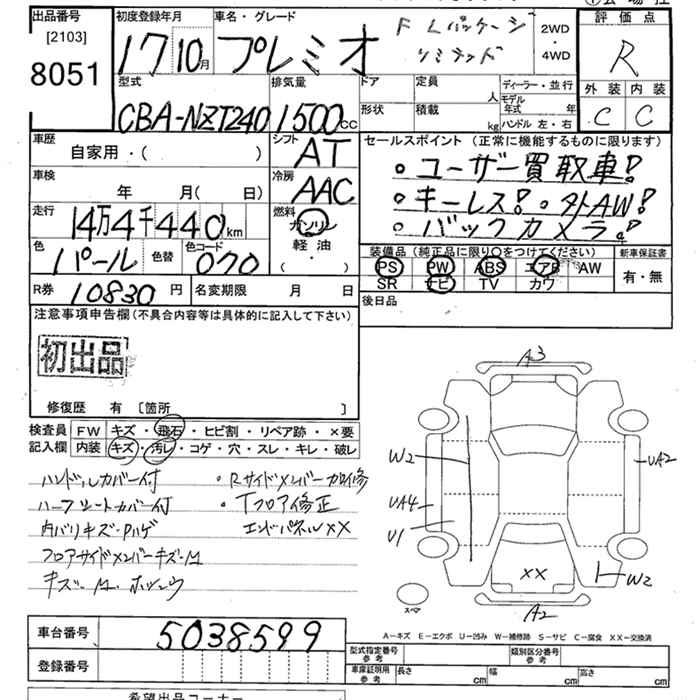 出品番号
[2103]
8051
初度登録年月
17 10月
車名・グレード
プレミオ
F Lパッケージ
リミテッド
2WD
・
4WD
評価点
R
外装 内装
C C
型式
CBA-NZT240
排気量
1500cc
ドア
定員
人
形状
積載
kg
ディーラー・並行
モデル年式 年
ハンドル 左・右
車歴
自家用・( )
シフト
AT
車検
年 月( 日)
冷房
AAC
走行
14万4千440km
燃料
ガソリン
軽油
・
( )
色
パール
色替
色コード
070
R券 10830円
名変期限 月 日
セールスポイント (正常に機能するものに限ります)
。ユーザー買取車!
。キーレス!。外AW!
。バックカメラ。!
装備品(純正品に限り〇をつけてください)
PS PW ABS エアB AW
SR ナビ TV カワ
新車保証書
有・無
後日品
注意事項申告欄(不具合内容等は具体的に記入して下さい)
初出品
修復歴 有 〔箇所 〕
検査員記入欄
FW キズ・飛石・ヒビ割・リペア跡・×要
内装 キズ・汚レ・コゲ・穴・スレ・キレ・破レ
ハンドルカバー付
ハーフシートカバー付
内バリキズ・ハゲ
フロアサイドメンバーキズ・M
・Rサイドメンバー
・Tフロア修正
エンドパネルXX
A3
W2
UA4
U1
UA2
XX
W2
A2
スペア
A―キズ E―エクボ U―凹み W―補修跡 S―サビ C―腐食 XX―交換済
車台番号 5038599
登録番号
型式指定番号
参考
類別区分番号
参考
車庫証明用
参考
長さ cm
幅 cm
高さ cm
希望出品コーナー